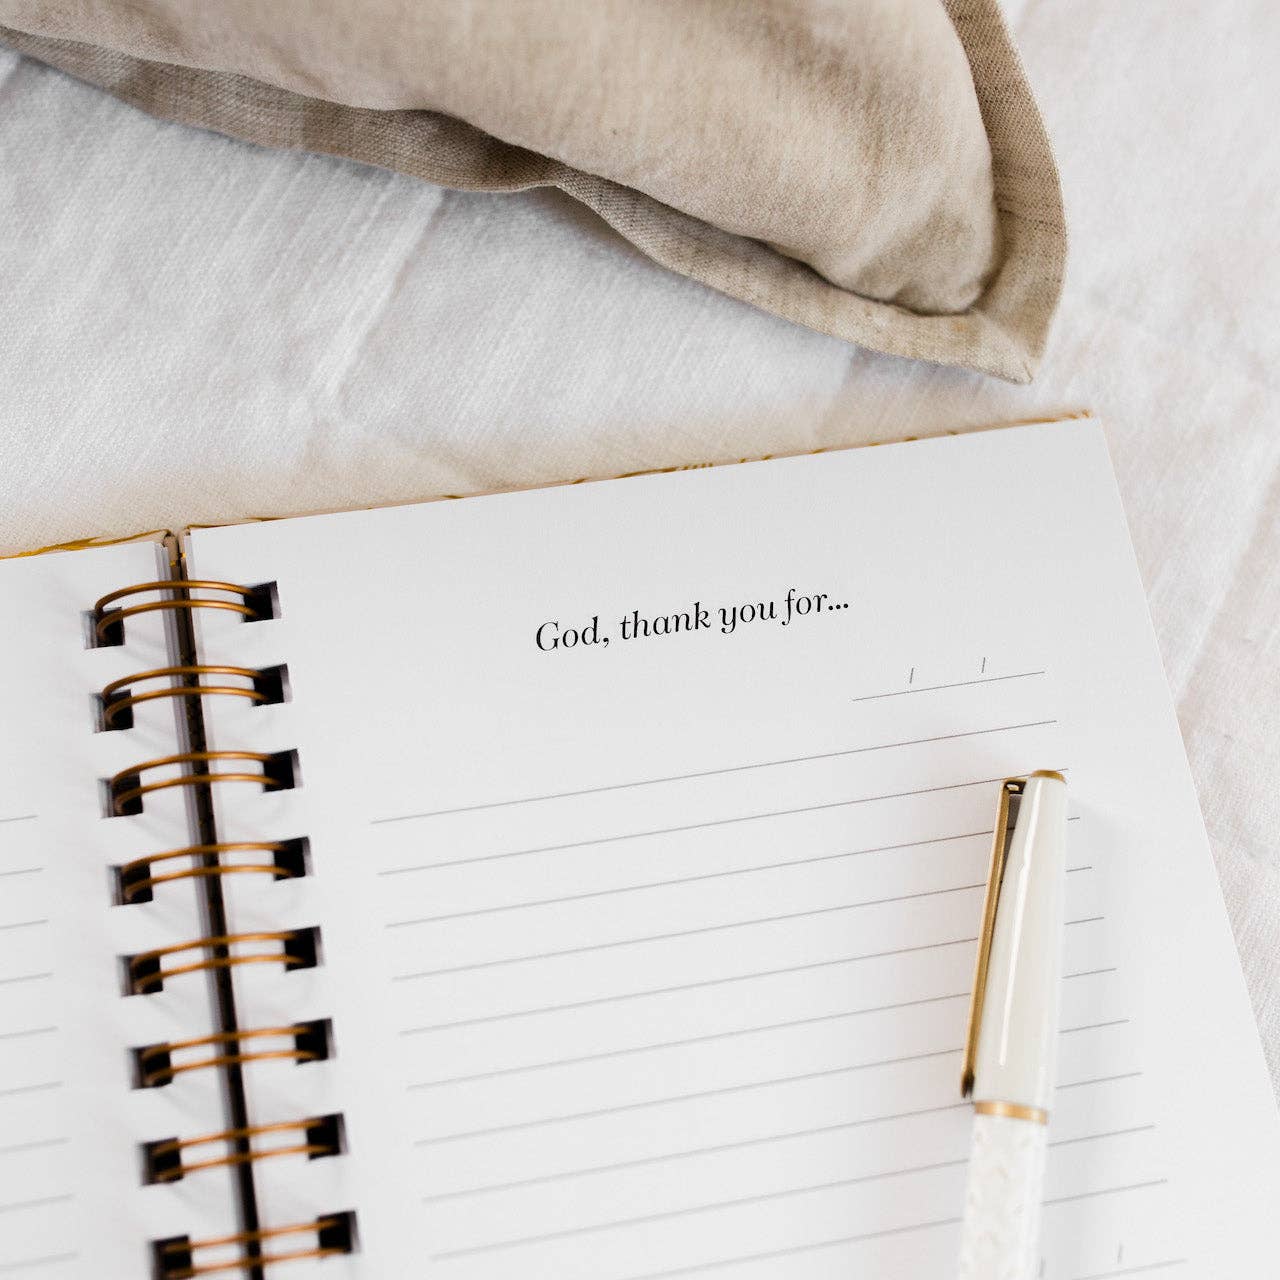 God, thank you for...